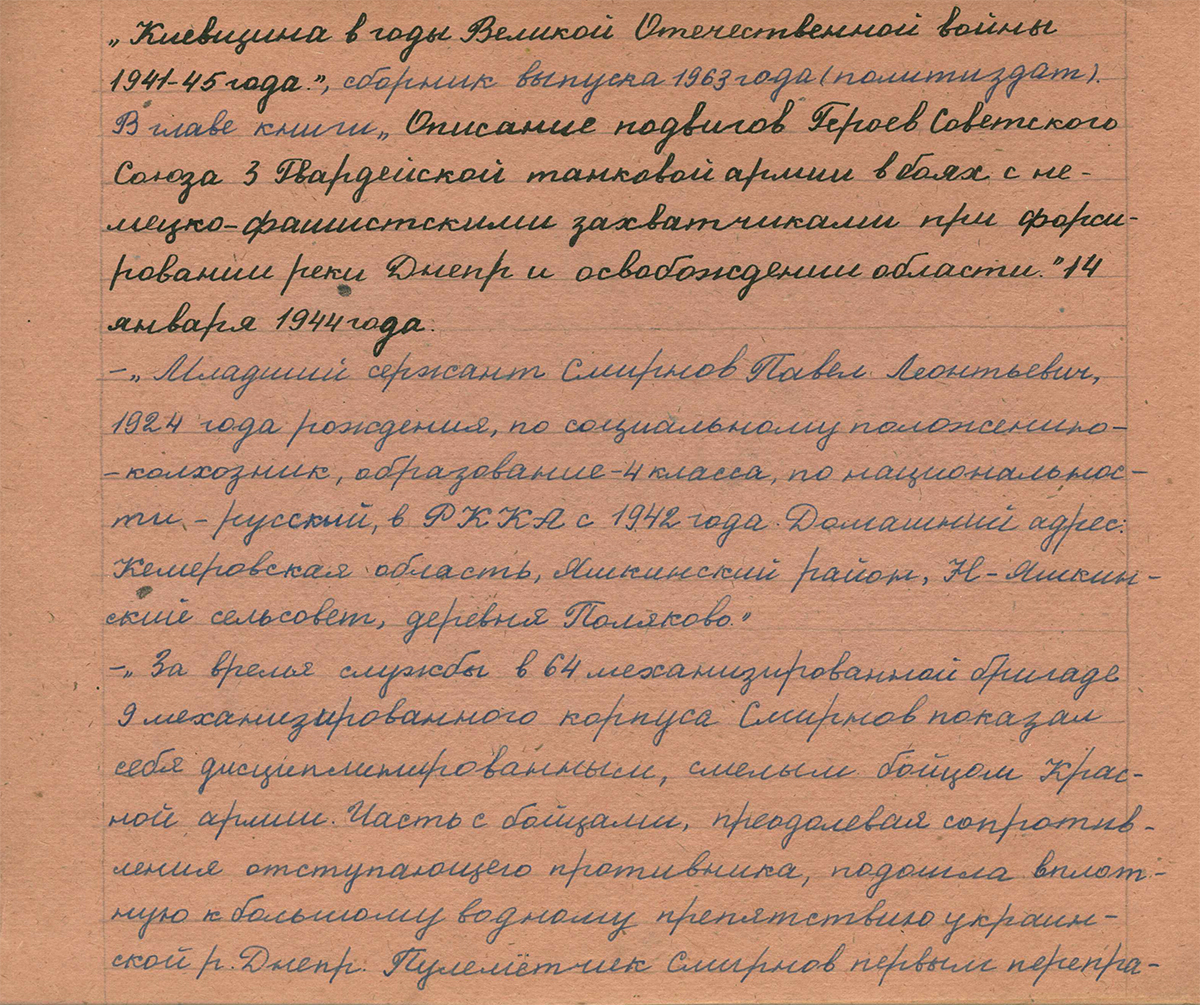 „Киевщина в годы Великой Отечественной войны
1941-45 года.", сборник выпуска 1963 года (политиздат).
В главе книги „Описание подвигов Героев Советского
Союза 3 Гвардейской танковой армии в боях с не-
мецко-фашистскими захватчиками при форси-
ровании реки Днепр и освобождении области." 14
января 1944 года.
-„Младший сержант Смирнов Павел Леонтьевич,
1924 года рождения, по социальному положению-
-колхозник, образование-4 класса, по национальнос-
ти - русский, в РККА с 1942 года. Домашний адрес:
Кемеровская область, Яшкинский район, Н-Яшкин-
ский сельсовет, деревня Поляково."
-„За время службы в 64 механизированной бригаде
9 механизированного корпуса Смирнов показал
себя дисциплинированным, смелым бойцом Крас-
ной армии. Часть с бойцами, преодолевая сопротив-
ления отступающего противника, подошла вплот-
ную к большому водному препятствию украин-
ской р. Днепр. Пулемётчик Смирнов первым перепра-